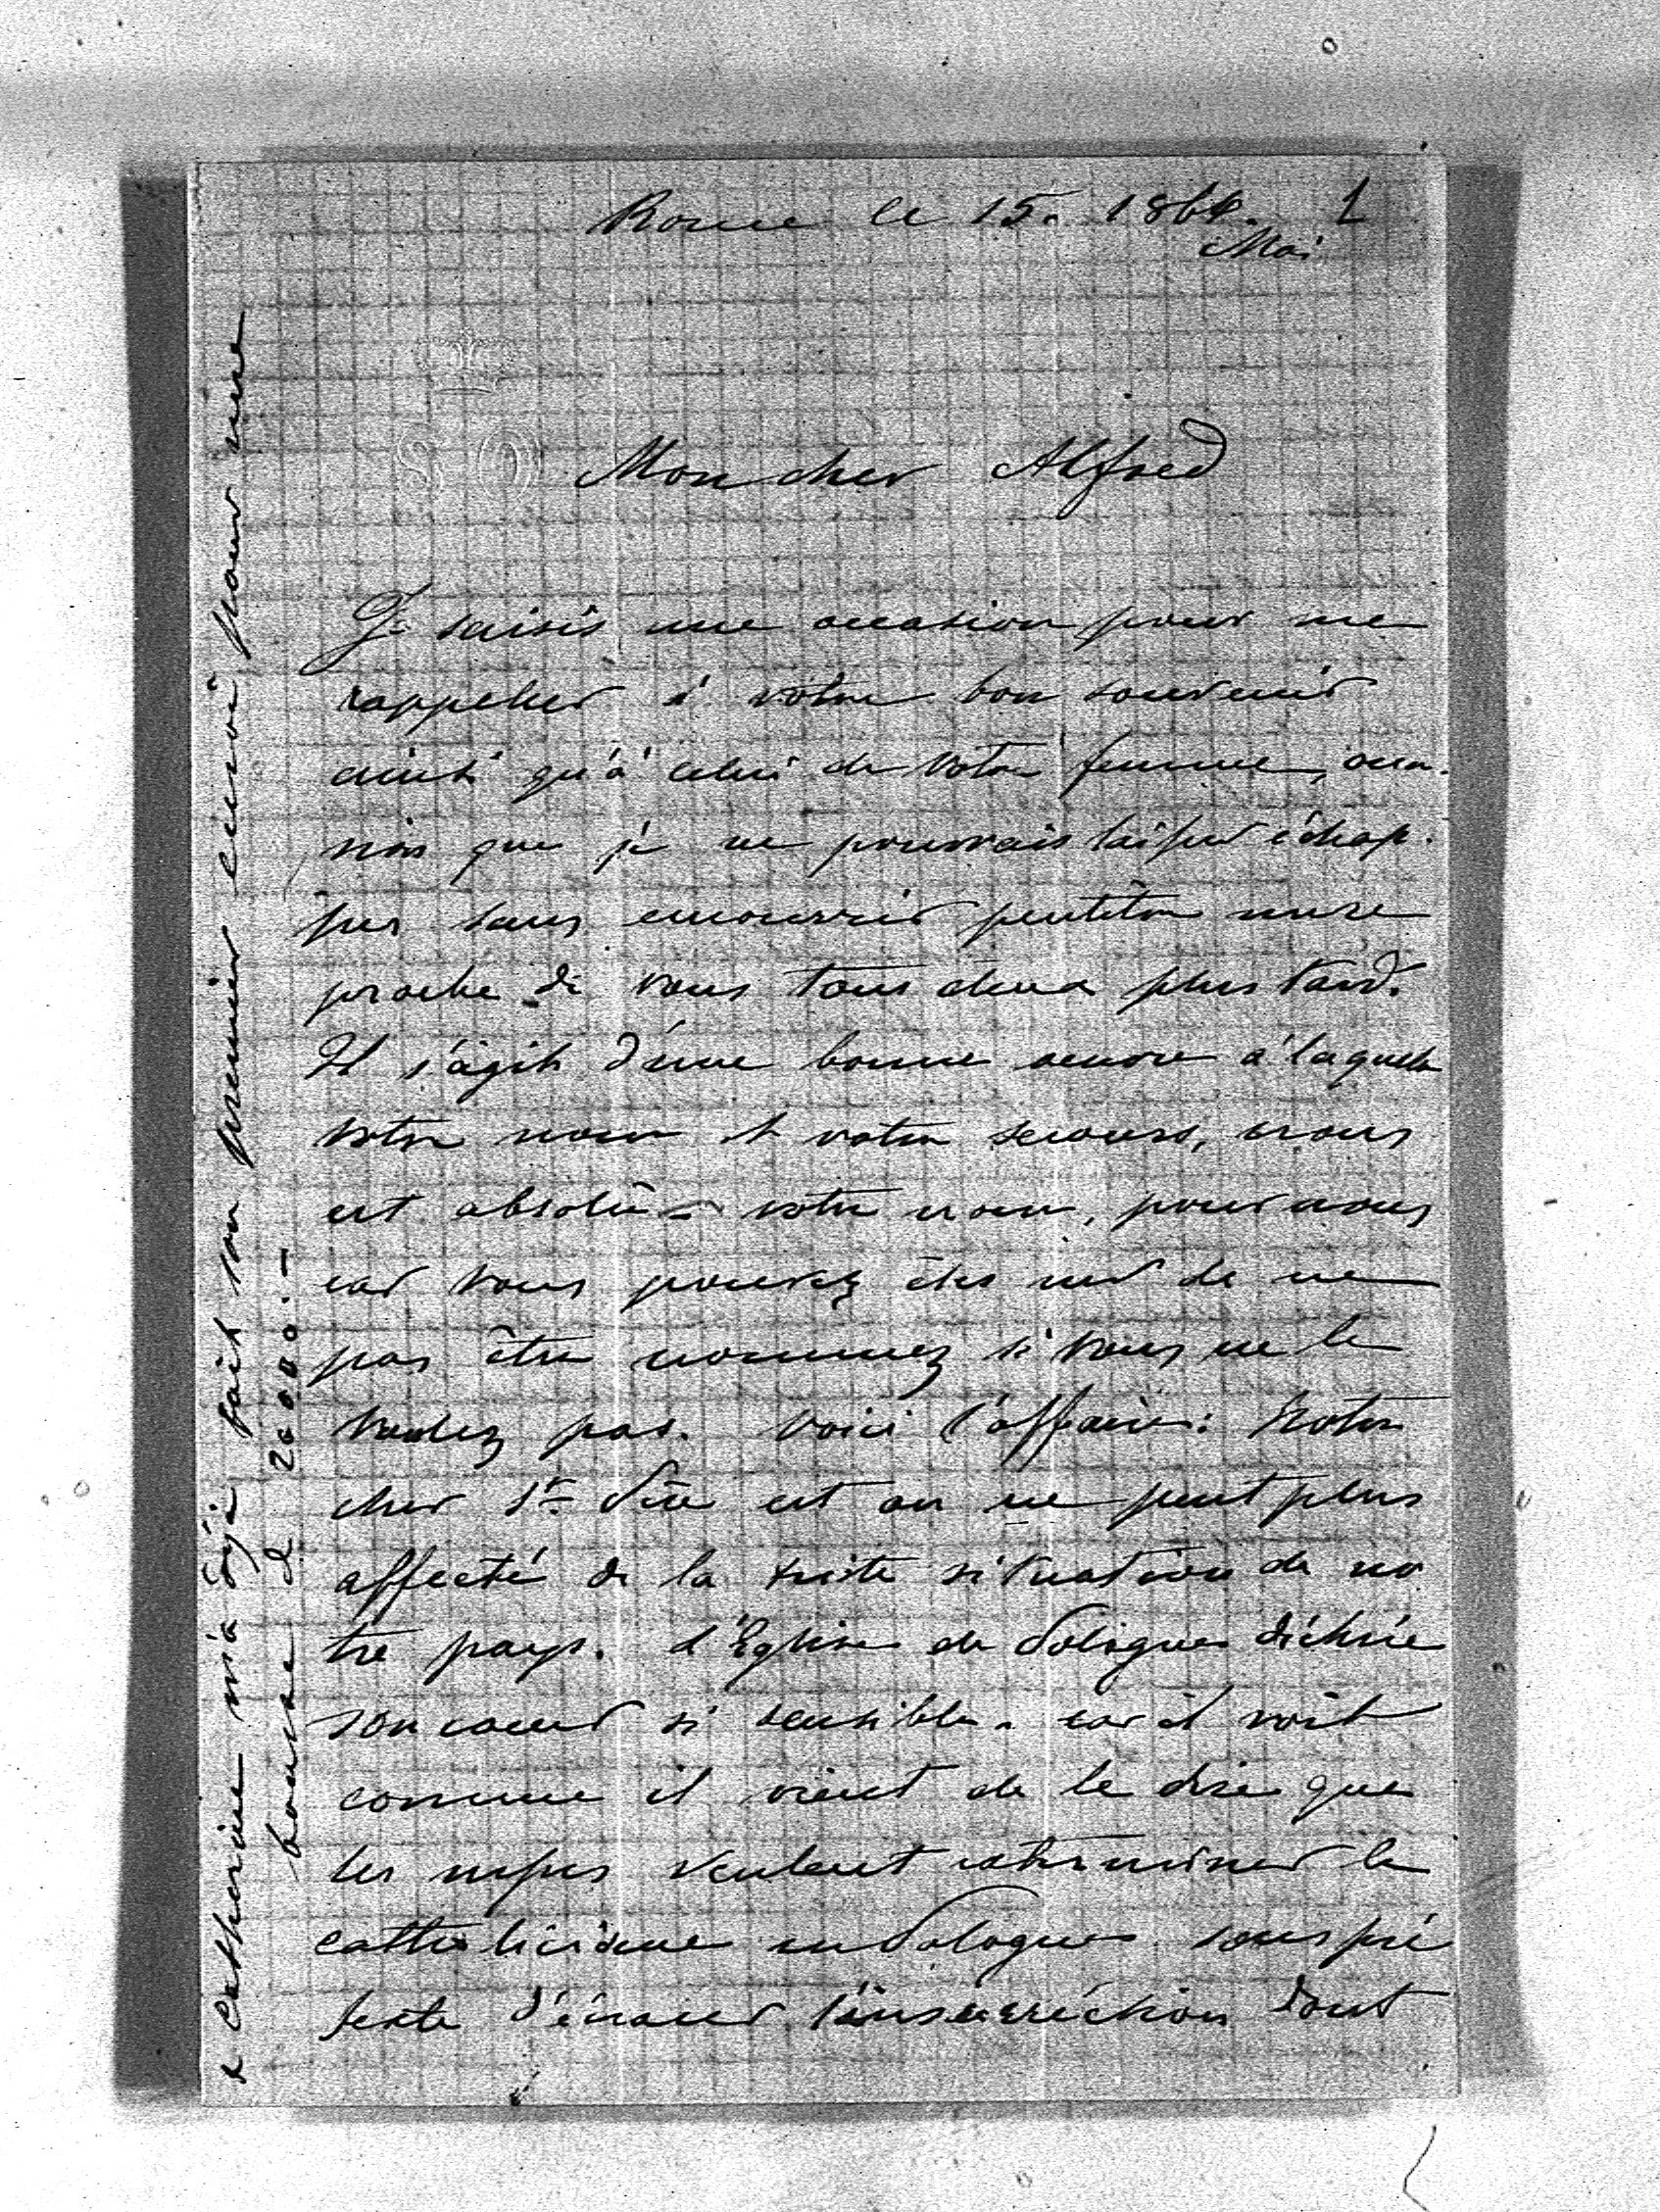 Rome le 15. 1864. 1
Mai
S O
Mon cher Alfred
Je saisis une occasion pour me
rappeller à votre bon souvenir
ainsi qu'à celui de votre femme, occa-
sion que je ne pourrais laisser échap-
per sans encourrir peutêtre un re
proche de vous tous deux plus tard.
Il s'agit d'une bonne oeuvre à laquelle
votre nom et votre secours, nous
est absolu votre nom, pour nous
car vous pouvez être sûr de ne
pas être nommez si vous ne le
voulez pas. Voici l'affaire: Notre
cher St Père est on ne peut plus
affecté de la triste situation de no
tre pays. L'Eglise de Pologne déchire
son coeur si sensible. car il voit
comme il vient de le dire que
les russes veulent exterminer le
catholicisme en Pologne sous pré
texte d'écraser l'insurréction dont
x Catherine m'a déjà fait son premier envoi pour une
bourse de 20000.-